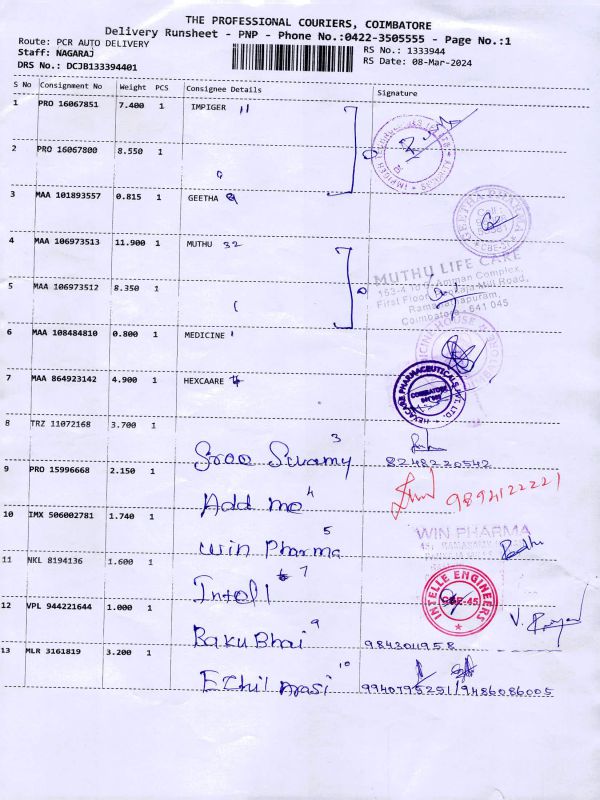 THE PROFESSIONAL COURIERS, COIMBATORE
Delivery Runsheet - PNP - Phone No.:0422-3505555 - Page No.:1
Route: PCR AUTO DELIVERY
RS No.: 1333944
Staff: NAGARAJ
RS Date: 08-Mar-2024
DRS No.: DCJB133394401
S No Consignment No Weight PCS Consignee Details Signature
1 PRO 16067851 7.400 1 IMPIGER 11
2 PRO 16067800 8.550 1
3 MAA 101893557 0.815 1 GEETHA
4 MAA 106973513 11.900 1 MUTHU 32
MUTHU LIFE CARE
Amman Complex,
First Floor, Road,
Ramanathapuram,
Coimbatore - 641 045
5 MAA 106973512 8.350 1
6 MAA 108484810 0.800 1 MEDICINE
7 MAA 864923142 4.900 1 HEXCAARE
HEXACARE PHARMACEUTICALS PVT. LTD.
COIMBATORE
8 TRZ 11072168 3.700 1
Sroo Swamy 3 8248220542
9 PRO 15996668 2.150 1
Add mo 4 9894122221
10 IMX 506002781 1.740 1
Win Pharma 5
WIN PHARMA
11 NKL 8194136 1.600 1
Intell 7
INTELLE ENGINEERS
CBE-45
12 VPL 944221644 1.000 1
Baku Bhai 9 9843011958
13 MLR 3161819 3.200 1
Ezhil Arasi 10 9940795251/9486086005